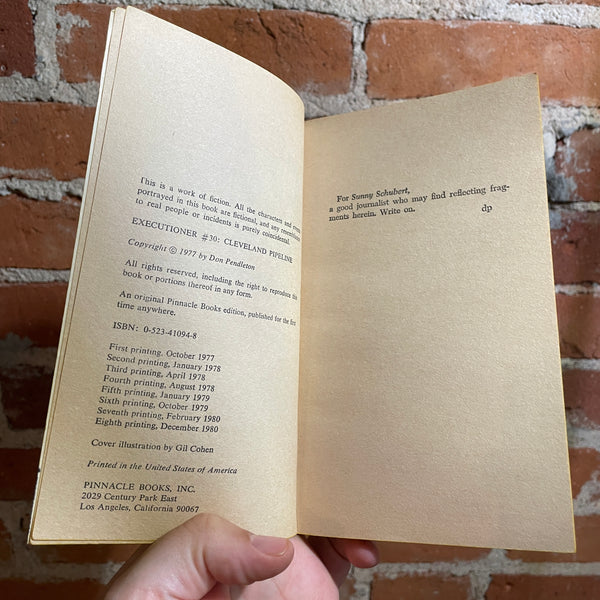 This is a work of fiction. All the characters and events
portrayed in this book are fictional, and any resemblance
to real people or incidents is purely coincidental.
EXECUTIONER #30: CLEVELAND PIPELINE
Copyright © 1977 by Don Pendleton
All rights reserved, including the right to reproduce this
book or portions thereof in any form.
An original Pinnacle Books edition, published for the first
time anywhere.
ISBN: 0-523-41094-8
First printing, October 1977
Second printing, January 1978
Third printing, April 1978
Fourth printing, August 1978
Fifth printing, January 1979
Sixth printing, October 1979
Seventh printing, February 1980
Eighth printing, December 1980
Cover illustration by Gil Cohen
Printed in the United States of America
PINNACLE BOOKS, INC.
2029 Century Park East
Los Angeles, California 90067
For Sunny Schubert,
a good journalist who may find reflecting frag-
ments herein. Write on. dp